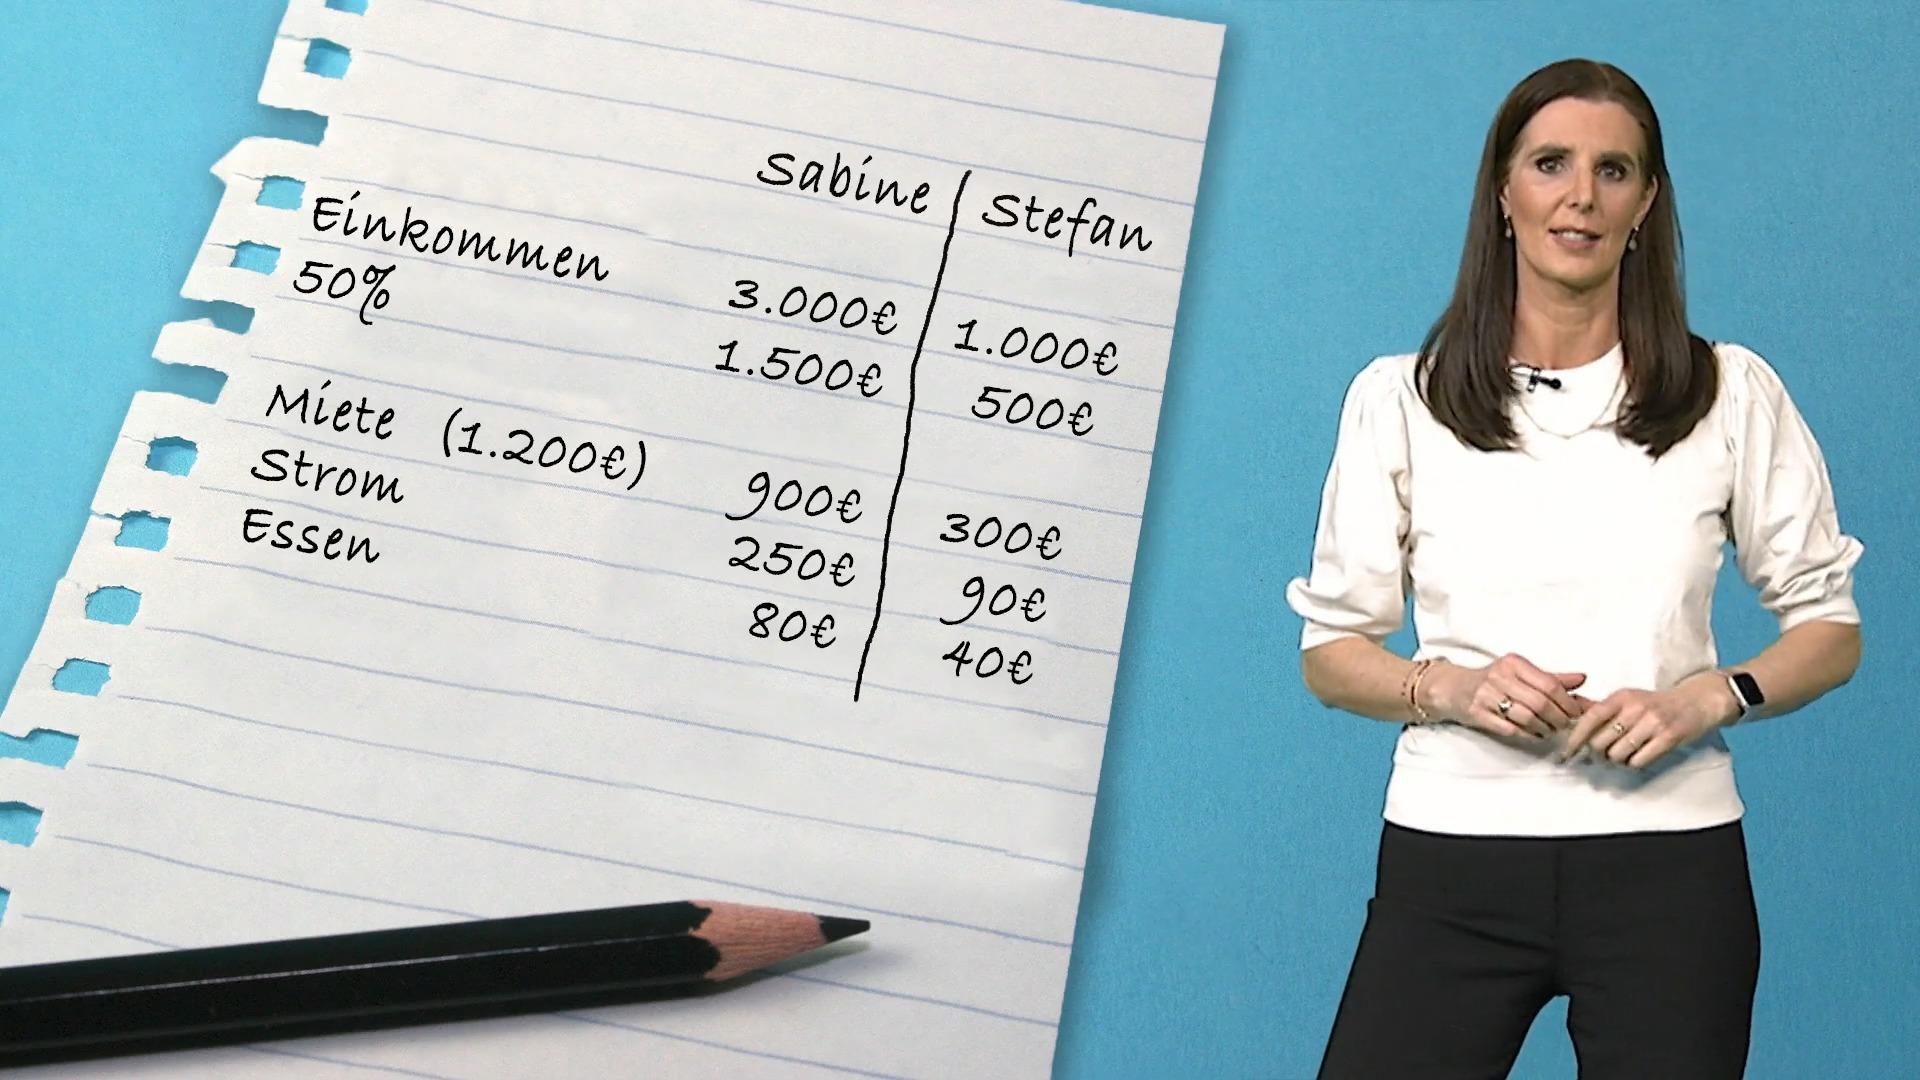 Sabine Stefan
Einkommen 3.000€ 1.000€
50% 1.500€ 500€
Miete (1.200€) 900€ 300€
Strom 250€ 90€
Essen 80€ 40€